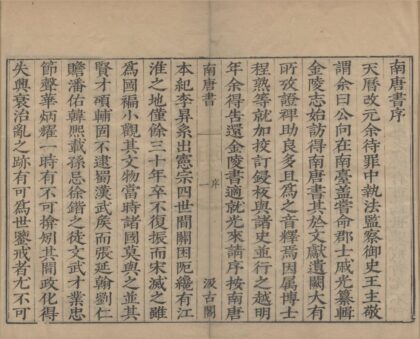 南唐書序
天曆改元余待罪中執法監察御史王主敬
謂余曰公向在南臺蓋嘗命郡士戚光纂輯
金陵志始訪得南唐書其於文獻遺闕大有
所攷證裨助良多且為之音釋焉因屬博士
程熟等就加挍訂鋟板與諸史並行之越明
年余得告還金陵書適就光來請序按南唐
南唐書 序 一 汲古閣
本紀李昪系出憲宗四世間關困阨纔有江
淮之地僅餘三十年卒不復振而宋滅之雖
為國褊小觀其文物當時諸國莫與之並其
賢才碩輔固不逮蜀漢武矦而張延翰劉仁
贍潘佑韓熙載孫忌徐鍇之徒文武才業忠
節聲華炳耀一時有不可揜矧其關政化得
失興衰治亂之跡有可為世鑒戒者尤不可